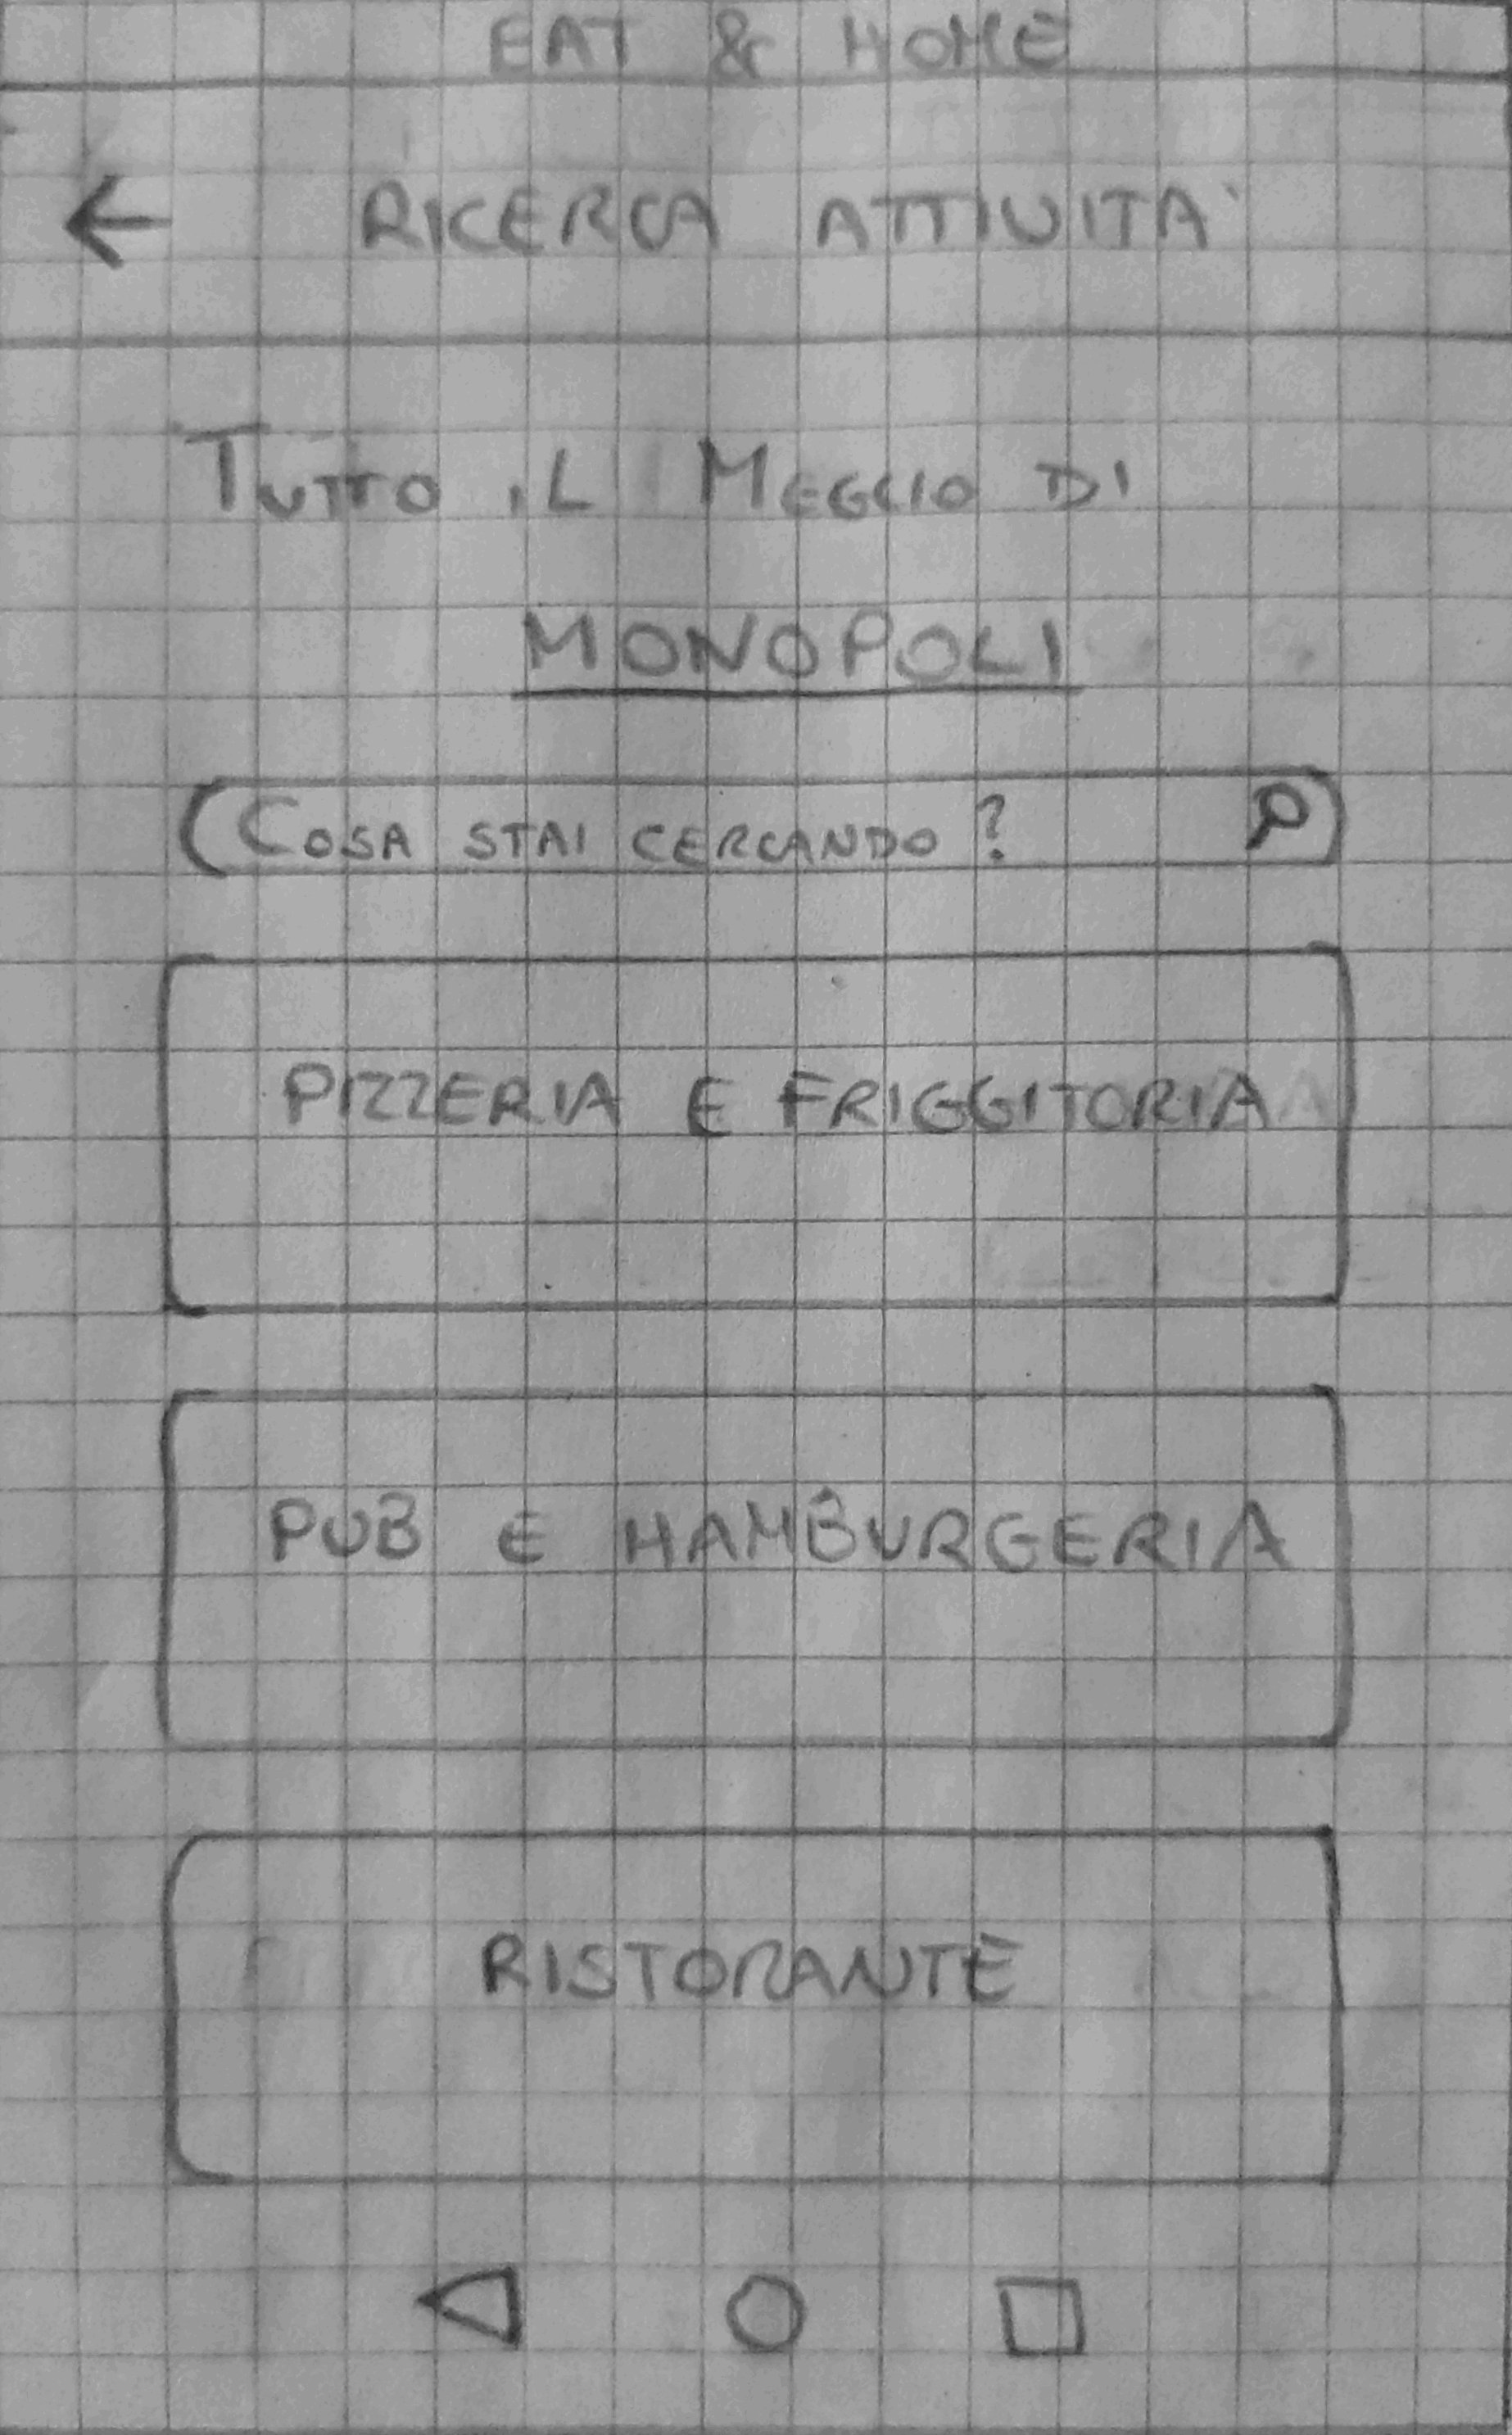 EAT & HOME
RICERCA ATTIVITA'
TUTTO IL MEGLIO DI
MONOPOLI
COSA STAI CERCANDO?
PIZZERIA E FRIGGITORIA
PUB E HAMBURGERIA
RISTORANTE